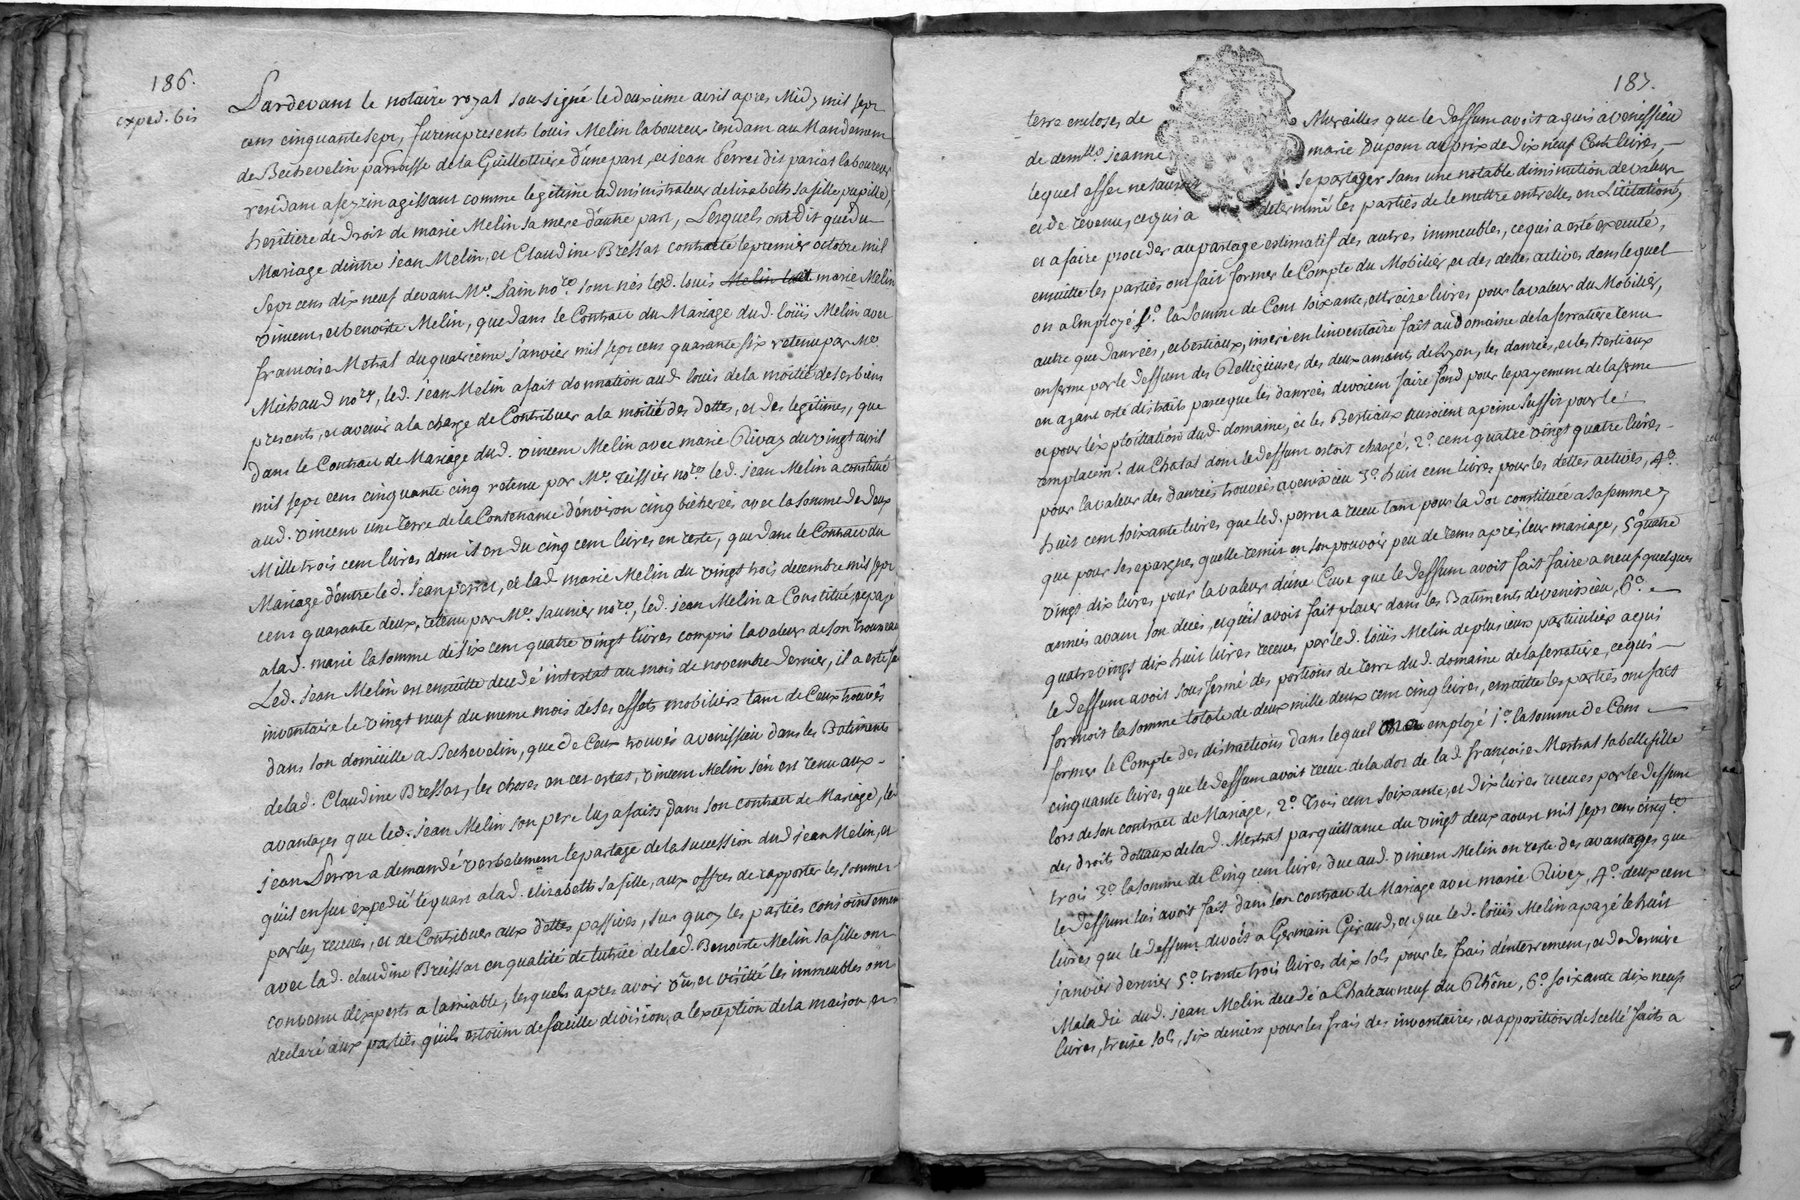 186.
exped. bis
Pardevant le notaire royal soussigné le deuxieme avril apres Midy mil sept
cens cinquante sept, furent presents louis Melin laboureur residant au Mandement
de Bechevelin parroisse de la Guillottiere d'une part, et jean Perret dit pariat laboureur
residant a feyzin agissant comme legitime administrateur d'elizabeth sa fille pupille,
heritiere de droit de marie Melin sa mere d'autre part, Lesquels ont dit que du
Mariage d'entre jean Melin, et Claudine Bressat contracté le premier octobre mil
sept cens dix neuf devant Me. Pain nore. sont nés lesd. louis marie Melin
vincent, et benoîte Melin, que dans le Contract du Mariage dud. loüis Melin avec
françoise Mestral du quatrieme janvier mil sept cens quarante six retenu par Me
Michaud nore, led. jean Melin a fait donnation aud. louis de la moitié de ses biens
presents, et avenir a la charge de Contribuer a la moitié des dettes, et des legitimes, que
dans le Contract de Mariage dud. vincent Melin avec marie Rivay du vingt avril
mil sept cens cinquante cinq retenu par Me. Teissier nore. led. jean Melin a constitué
aud. vincent une terre de la Contenance d'environ cinq bicherées avec la somme de deux
Mille trois cent livres dont il en du cinq cent livres en reste, que dans le Contract du
Mariage d'entre led. jean perret, et lad. marie Melin du vingt trois decembre mil sept
cens quarante deux, retenu par Me. Saunier nore, led. jean Melin a Constitué, et payé
a lad. marie la somme de six cent quatre vingt livres compris la valeur de son trousseau
Led. jean Melin est ensuitte decedé intestat au mois de novembre dernier, il a esté fait
inventaire le vingt neuf du meme mois de ses effets mobiliers tant de Ceux trouvés
dans son domicille a Bechevelin, que de Ceux trouvés a venissieu dans les Batiments
de lad. Claudine Bressat, les choses en cet estat, vincent Melin s'en est tenu aux
avantages que led. jean Melin son pere luy a faits dans son contract de Mariage, led.
jean Perret a demandé verbalement le partage de la succession dud jean Melin, et
qu'il en fut expedié le quart a lad. elizabeth sa fille, aux offres de rapporter les sommes
par luy receues, et de Contribuer aux dettes passives, sur quoy les parties conjointement
avec lad. claudine Bressat en qualité de tutrice de lad. Benoiste Melin sa fille ont
convenu d'experts a l'amiable, lesquels apres avoir vû, et visitté les immeubles ont
declaré aux parties qu'ils estoient de facille division, a l'exception de la maison, et
187.
terre encloses de Murailles que le deffunt avoit aquis a venissieu
de demlle. jeanne marie Dupont au prix de dix neuf Cent livres,
lequel effet ne sauroit se partager sans une notable diminution de valeur
et de revenu, ce qui a determiné les parties de le mettre entr'elles, en Licitation,
et a faire proceder au partage estimatif des autres immeubles, ce qui a esté executé,
ensuitte les parties ont fait former le Compte du Mobilier, et des dettes actives dans lequel
on a employé 1o. la somme de Cent soixante, et treize livres pour la valeur du Mobilier,
autre que danrées, et bestiaux, inseré en l'inventaire fait au domaine de la ferratiere tenu
en ferme par le deffunt des Relligieuses des deux amants de Lyon, les danrées, et les bestiaux
en ayant esté distraits parceque les danrées devoient faire fond pour le payement de la ferme
et pour l'exploittation dud. domaine, et les Bestiaux auroient a peine suffit pour le
remplacemt. du Chatal dont le deffunt estoit chargé, 2o. cent quatre vingt quatre livres
pour la valeur des danrées trouvées a venissieu 3o. huit cent livres pour les dettes actives, 4o.
huit cent soixante livres que led. perret a receu tant pour la dot constituée a sa femme,
que pour ses epargnes quelle remit en son pouvoir peu de tems apres leur mariage, 5o. quatre
vingt dix livres pour la valeur d'une Cuve que le deffunt avoit fait faire a neuf quelques
années avant son deces, et qu'il avoit fait placer dans les Batiments de venissieu, 6o.
quatre vingt dix huit livres receues par led. loüis Melin de plusieurs particuliers a qui
le deffunt avoit sous fermé des portions de terre dud. domaine de la ferratiere, ce qui
formoit la somme totale de deux mille deux cent cinq livres, ensuitte les parties ont fait
former le Compte des distractions dans lequel on a employé 1o. la somme de Cent
cinquante livres que le deffunt avoit receu de la dot de lad. françoise Mestral sa belle fille
lors de son contract de Mariage, 2o. trois cent soixante, et dix livres receues par le deffunt
des droits dotaux de lad. Mestral par quittance du vingt deux aoust mil sept cens cinqte.
trois 3o. la somme de Cinq cent livres due aud. vincent Melin en reste des avantages que
le deffunt lui avoit fait dans son contract de Mariage avec marie Rivey, 4o. deux cent
livres que le deffunt devoit a Germain Giraud, et que led. loüis Melin a payé le huit
janvier dernier 5o. trente trois livres dix sols pour les frais d'enterrement, et de derniere
Maladie dud. jean Melin decedé a Chateauneuf du Rhône, 6o. soixante dix neuf
livres, treize sols, six deniers pour les frais des inventaires, et apposition de scellé faits a